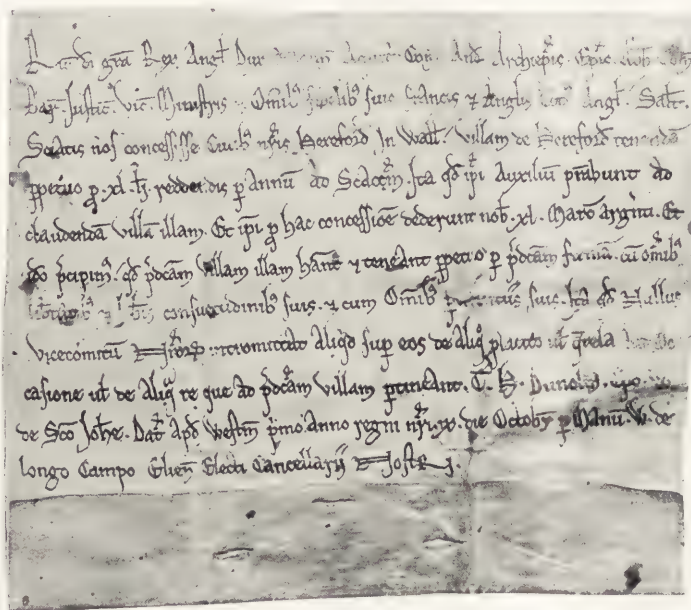 Ric di gra Rex Angl Dux Aquit Com And Archiepis Epis Abb Com
Bar Justic Vic Ministris Omib fidelib suis Francis ⁊ Anglis toti Angl. Salt.
Sciatis nos concessisse Civib nris Hereford In Wall. Villam de Hereford tenendā
ppetuo p .xl. lb reddendis p Annū ad Scaccm. Ita qd ipi Auxiliū prebunt ad
claudendā villā illam. Et ipi p hac concessiōe dederunt nob .xl. Marc argnti. Et
ido pcipim qd pdcam Villam illam hant ⁊ teneant ppetuo p pdcam firmā cū omib
libtatib ⁊ lib consuetudinib suis. ⁊ cum Omib ptinentiis suis. Ita qd Nullus
vicecomitū Nror intromittat Aliqd sup eos de Aliq placito ut qrela
casione ut de Aliq re que ad pdcam villam ptineant. T. H. Dunolm epo
de Sco Johe. Dat Apd Westm pmo anno regni nri .ix. die Octobr p Manū W. de
longo Campo Elien Electi Cancellarii Nostri.